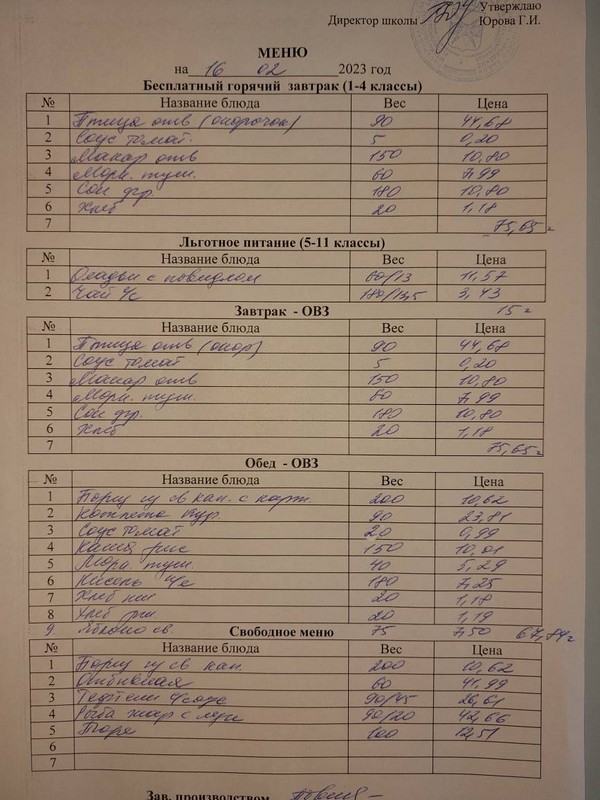 Утверждаю
Директор школы Юрова Г.И.
МЕНЮ
на 16 02 2023 год
Бесплатный горячий завтрак (1-4 классы)
№ Название блюда Вес Цена
1 Птица отв (окорочок) 90 44,68
2 Соус томат. 5 0,20
3 Макар отв 150 10,80
4 Морк. туш. 60 7,99
5 Сок фр 180 10,80
6 Хлеб 20 1,18
7 75,65
Льготное питание (5-11 классы)
№ Название блюда Вес Цена
1 Оладьи с повидлом 60/13 11,57
2 Чай с/с 180/13,5 3,43
15
Завтрак - ОВЗ
№ Название блюда Вес Цена
1 Птица отв (окор) 90 44,68
2 Соус томат 5 0,20
3 Макар отв 150 10,80
4 Морк. туш. 60 7,99
5 Сок фр. 180 10,80
6 Хлеб 20 1,18
7 75,65
Обед - ОВЗ
№ Название блюда Вес Цена
1 Борщ из св кап. с карт. 200 10,62
2 Котлета кур. 90 23,81
3 Соус томат 20 0,99
4 Каша рис 150 10,01
5 Морк. туш. 40 5,29
6 Кисель 180 7,25
7 Хлеб 20 1,18
8 Хлеб рж. 20 1,19
9 Яблоко св. 75 7,50 67,84
Свободное меню
№ Название блюда Вес Цена
1 Борщ из св кап. 200 10,62
2 Отбивная 60 41,99
3 Тефтели 90/45 26,61
4 Рыба жар с лук 90/20 42,66
5 Пюре 100 12,51
6
7
Зав. производством